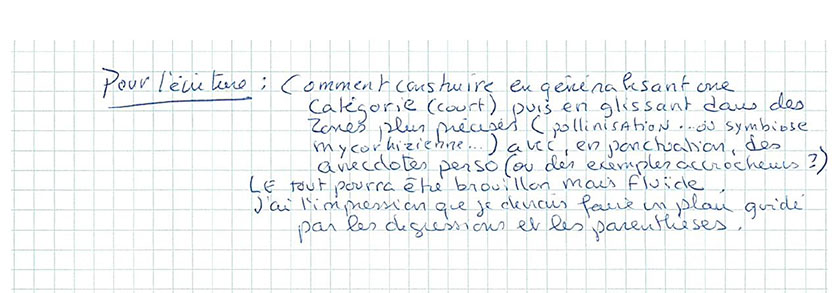 Pour l'écriture : Comment construire en généralisant une
catégorie (court) puis en glissant dans des
zones plus précises (pollinisation... ou symbiose
mycorhizienne...) avec, en ponctuation, des
anecdotes perso (ou des exemples accrocheurs ?)
Le tout pourra être brouillon mais fluide.
J'ai l'impression que je devrais faire un plan guidé
par les digressions et les parenthèses.